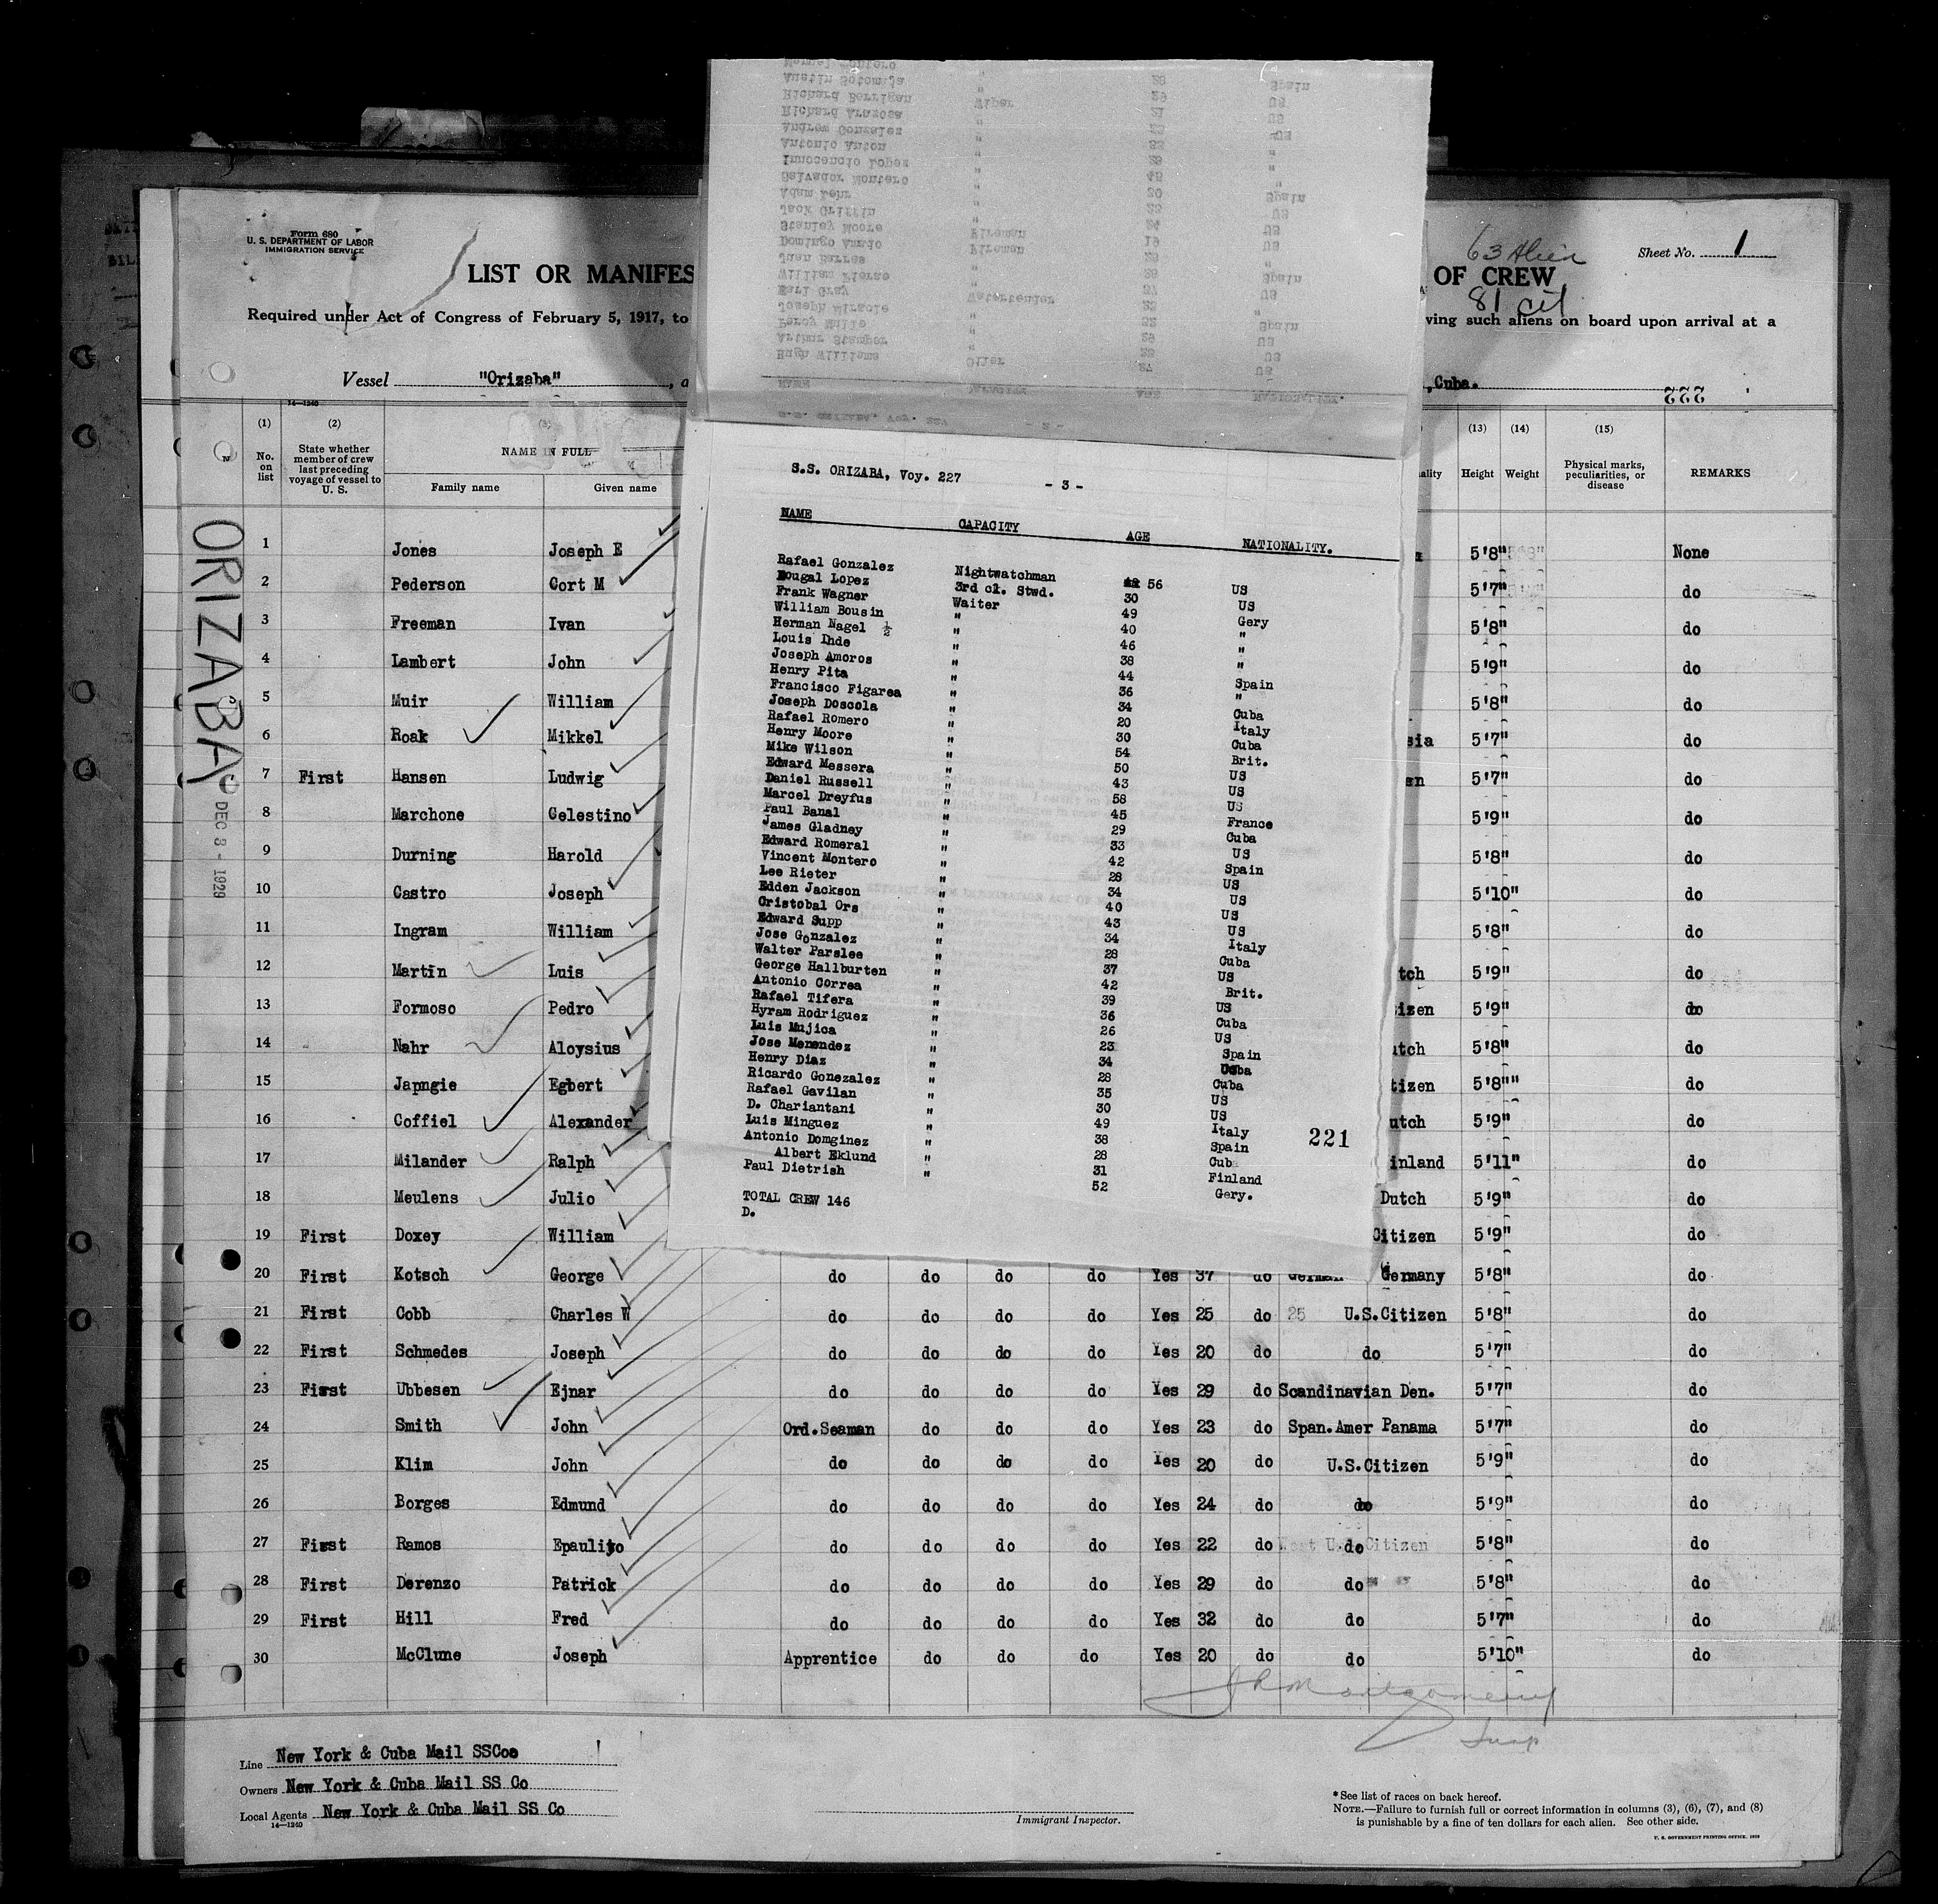 Form 680
U. S. DEPARTMENT OF LABOR
IMMIGRATION SERVICE
LIST OR MANIFES
OF CREW
63 Alien
81 cit
Sheet No. 1
Required under Act of Congress of February 5, 1917, to
ving such aliens on board upon arrival at a
Vessel "Orizaba" , a
, Cuba.
222
14—1240
ORIZABA
DEC 3 - 1929
Richard Berrigan Wiper 29 US
Andrew Gonzalez
Antonio Anton
Innocencio Lopez
Salvador Montero
Jack Griffin
Stanley Moore Fireman
William Pierse
Earl Gray Watertender
Arthur Stamper
Hugh Williams Oiler 27 US
NAME CAPACITY AGE NATIONALITY.
S.S. ORIZABA, Voy. 227 - 2 -
S.S. ORIZABA, Voy. 227 - 3 -
NAME CAPACITY AGE NATIONALITY.
Rafael Gonzalez Nightwatchman 56 US
Dougal Lopez 3rd cl. Stwd. 30 US
Frank Wagner Waiter 49 Gery
William Bousin " 40 "
Herman Nagel ½ " 46 "
Louis Ihde " 38 "
Joseph Amoros " 44 Spain
Henry Pita " 36 "
Francisco Figarea " 34 Cuba
Joseph Doscola " 20 Italy
Rafael Romero " 30 Cuba
Henry Moore " 54 Brit.
Mike Wilson " 50 US
Edward Messera " 43 US
Daniel Russell " 58 US
Marcel Dreyfus " 45 France
Paul Banal " 29 Cuba
James Gladney " 33 US
Edward Romeral " 42 Spain
Vincent Montero " 28 US
Lee Rieter " 34 US
Edden Jackson " 40 US
Cristobal Ors " 43 US
Edward Supp " 34 Italy
Jose Gonzalez " 28 Cuba
Walter Parslee " 37 US
George Hallburten " 42 Brit.
Antonio Correa " 39 US
Rafael Tifera " 36 Cuba
Hyram Rodriguez " 26 US
Luis Mujica " 23 Spain
Jose Menendez " 34 Cuba
Henry Diaz " 28 Cuba
Ricardo Gonezalez " 35 US
Rafael Gavilan " 30 US
D. Chariantani " 49 Italy
Luis Minguez " 38 Spain
Antonio Domginez " 28 Cub
Albert Eklund " 31 Finland
Paul Dietrish " 52 Gery.
TOTAL CREW 146
D.
221
(1) (2) (3) (13) (14) (15)
No. on list
State whether member of crew last preceding voyage of vessel to U. S.
NAME IN FULL
Family name Given name
ality Height Weight
Physical marks, peculiarities, or disease
REMARKS
1 Jones Joseph E 5'8" None
2 Pederson Cort M 5'7" do
3 Freeman Ivan 5'8" do
4 Lambert John 5'9" do
5 Muir William 5'8" do
6 Roak Mikkel sia 5'7" do
7 First Hansen Ludwig en 5'7" do
8 Marchone Celestino 5'9" do
9 Durning Harold 5'8" do
10 Castro Joseph 5'10" do
11 Ingram William 5'8" do
12 Martin Luis tch 5'9" do
13 Formoso Pedro izen 5'9" do
14 Nahr Aloysius utch 5'8" do
15 Japngie Egbert tizen 5'8"" do
16 Coffiel Alexander utch 5'9" do
17 Milander Ralph inland 5'11" do
18 Meulens Julio Dutch 5'9" do
19 First Doxey William Citizen 5'9" do
20 First Kotsch George do do do do Yes 37 do German Germany 5'8" do
21 First Cobb Charles W do do do do Yes 25 do 25 U.S.Citizen 5'8" do
22 First Schmedes Joseph do do do do Yes 20 do do 5'7" do
23 First Ubbesen Ejnar do do do do Yes 29 do Scandinavian Den. 5'7" do
24 Smith John Ord.Seaman do do do Yes 23 do Span.Amer Panama 5'7" do
25 Klim John do do do do Yes 20 do U.S.Citizen 5'9" do
26 Borges Edmund do do do do Yes 24 do do 5'9" do
27 First Ramos Epaulito do do do do Yes 22 do do 5'8" do
28 First Derenzo Patrick do do do do Yes 29 do do 5'8" do
29 First Hill Fred do do do do Yes 32 do do 5'7" do
30 McClune Joseph Apprentice do do do Yes 20 do do 5'10" do
J R Montgomery
Insp
Line New York & Cuba Mail SSCoo
Owners New York & Cuba Mail SS Co
Local Agents New York & Cuba Mail SS Co
14—1240
Immigrant Inspector.
*See list of races on back hereof.
NOTE.—Failure to furnish full or correct information in columns (3), (6), (7), and (8)
is punishable by a fine of ten dollars for each alien. See other side.
U. S. GOVERNMENT PRINTING OFFICE. 1929